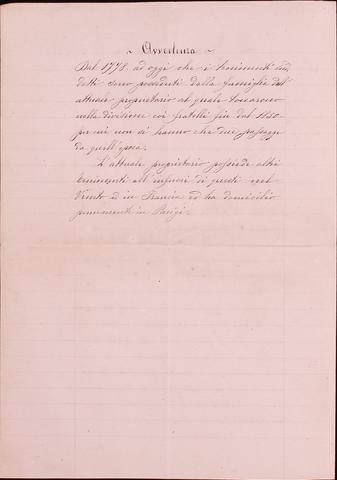 ~ Avvertenza ~
Dal 1778 ad oggi che i tenimenti sud,
detti sono posseduti dalla famiglia dell'
attuale proprietario al quale toccarono
nella divisione coi fratelli fin dal 1850-
per cui non si hanno che due passaggi
da quell'epoca.
L'attuale proprietario possiede altri
tenimenti all'infuori di questi nel
Veneto e in Francia ed ha domicilio
permanente in Parigi.